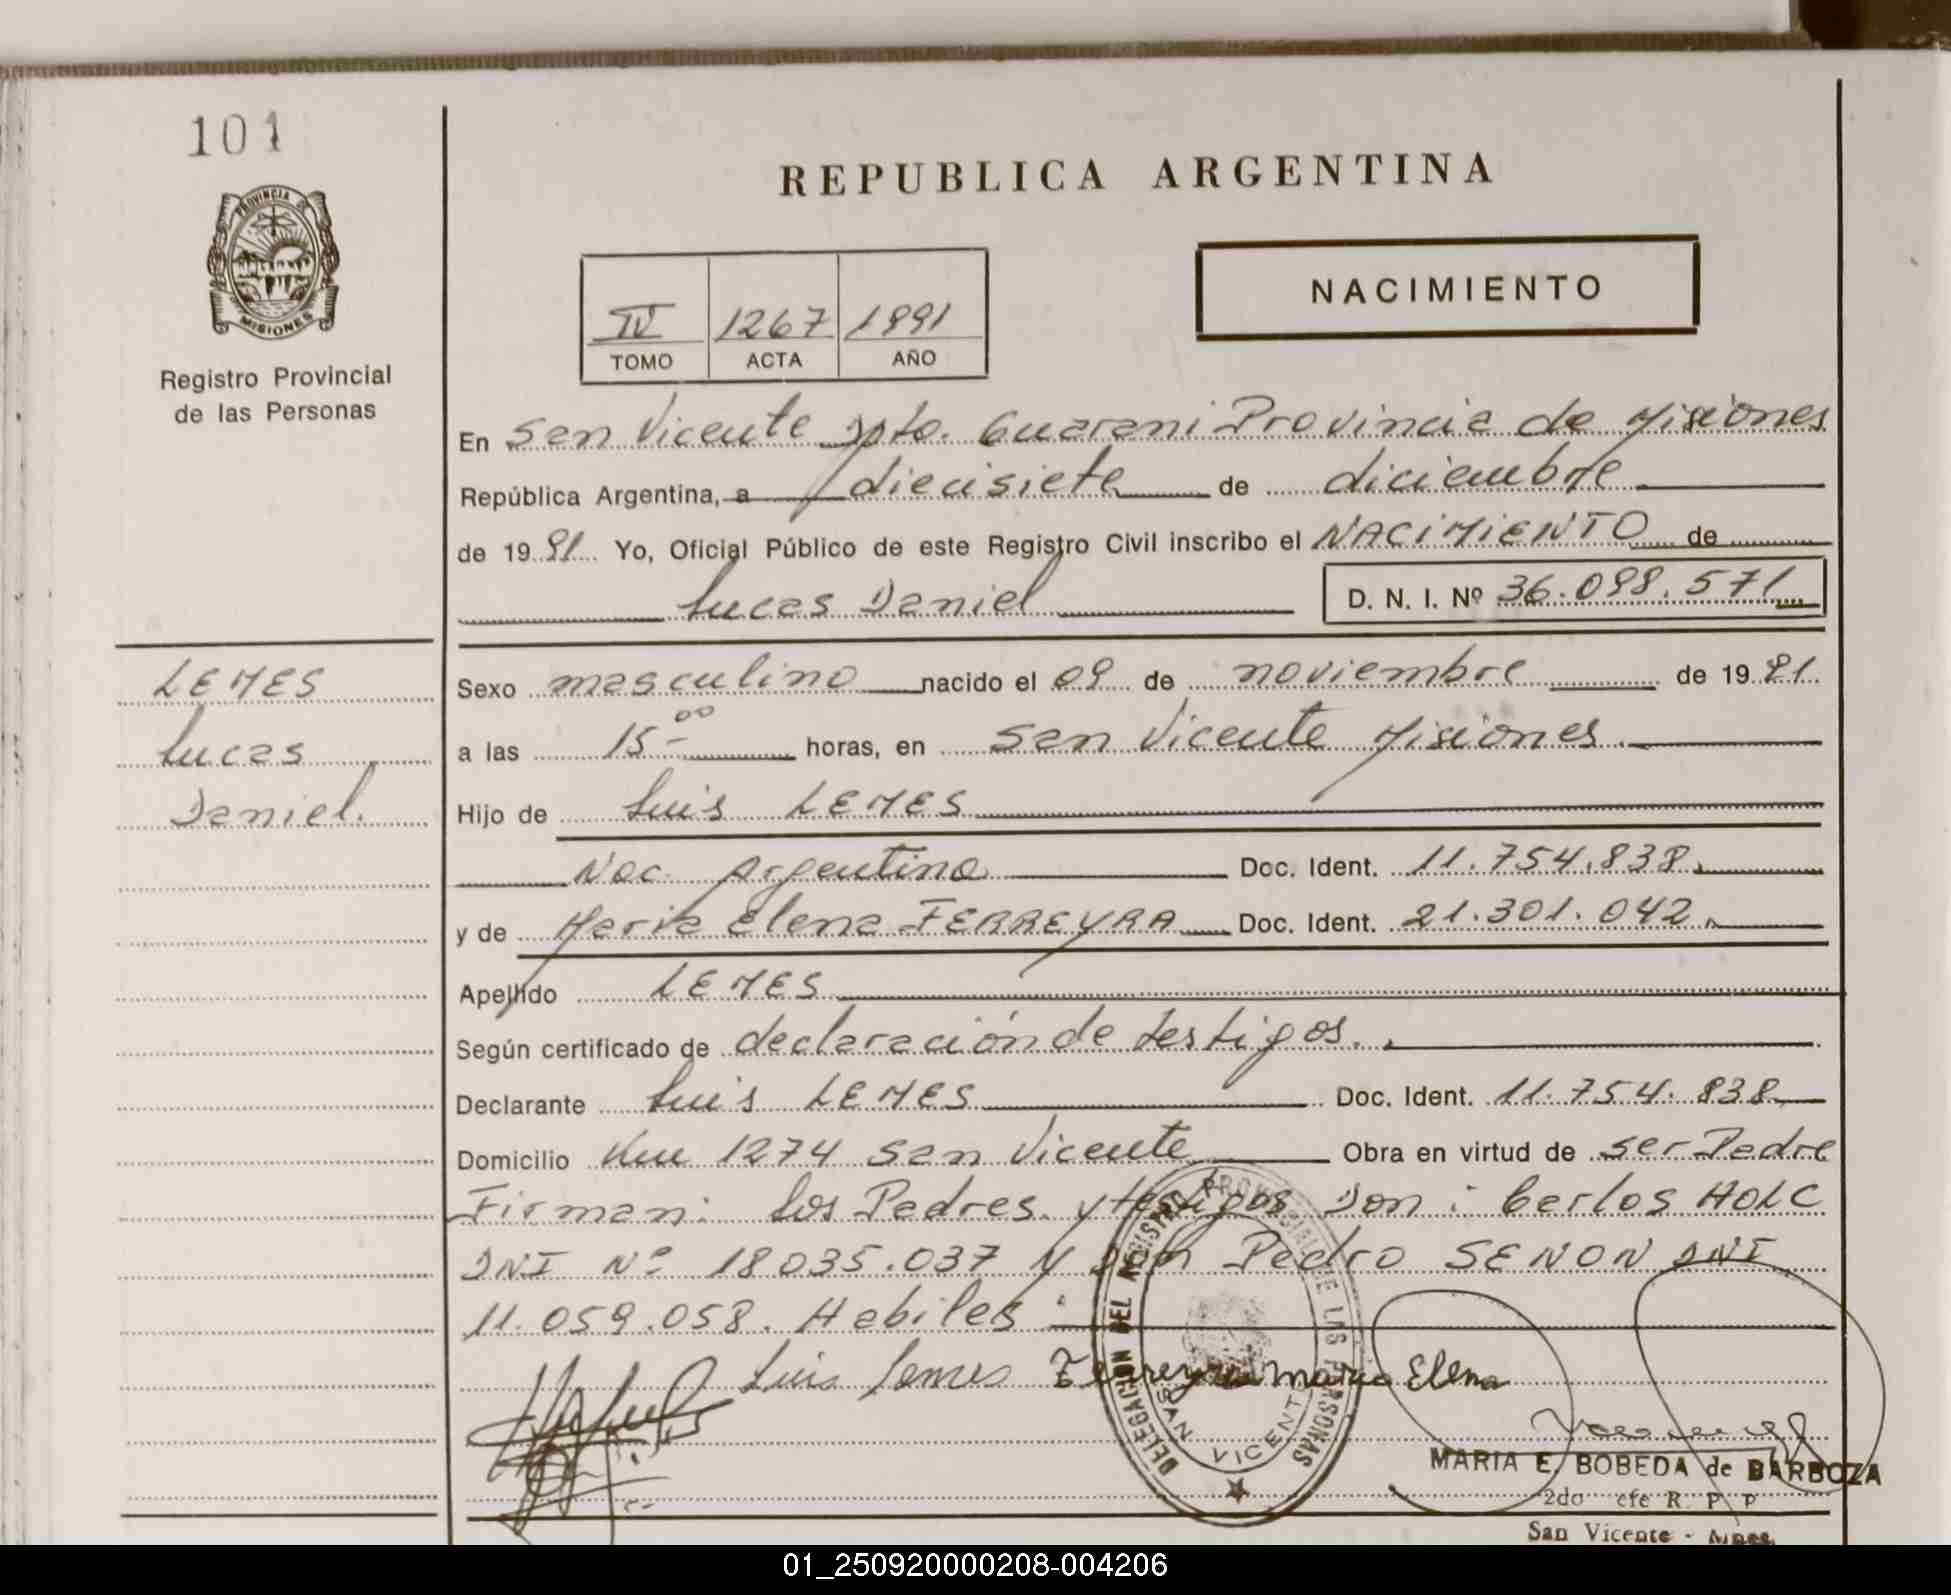 101
REPUBLICA ARGENTINA
PROVINCIA DE
MISIONES
Registro Provincial
de las Personas
IV 1267 1991
TOMO ACTA AÑO
NACIMIENTO
En San Vicente Dpto. Guarani Provincia de Misiones
República Argentina, a diecisiete de diciembre
de 19 91 Yo, Oficial Público de este Registro Civil inscribo el NACIMIENTO de
Lucas Daniel D. N. I. Nº 36.098.571
LEMES
Lucas
Daniel.
Sexo masculino nacido el 09 de noviembre de 19 91.
a las 15-00 horas, en San Vicente Misiones.
Hijo de Luis LEMES
Nac. Argentina Doc. Ident. 11.754.838.
y de Maria Elena FERREYRA Doc. Ident. 21.301.042.
Apellido LEMES
Según certificado de declaración de testigos.
Declarante Luis LEMES Doc. Ident. 11.754.838
Domicilio Km 1274 San Vicente Obra en virtud de ser Padre
Firman: los Padres y testigos Don: Carlos HOLC
DNI Nº 18035.037 y Don Pedro SENON DNI
11.059.058. Habiles:
Luis Lemes Ferreyra Maria Elena
DELEGACION DEL REGISTRO PROVINCIAL DE LAS PERSONAS
SAN VICENTE
MARIA E. BOBEDA de BARBOZA
2do efe R. P. P
San Vicente - Mnes.
01_250920000208-004206